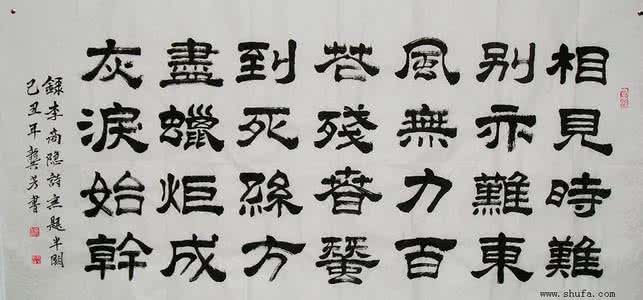 相見時難
别亦難東
風無力百
花殘春蠶
到死絲方
盡蠟炬成
灰淚始幹
錄李商隐詩無題半闋
己丑年龔芳書
www.shufa.com